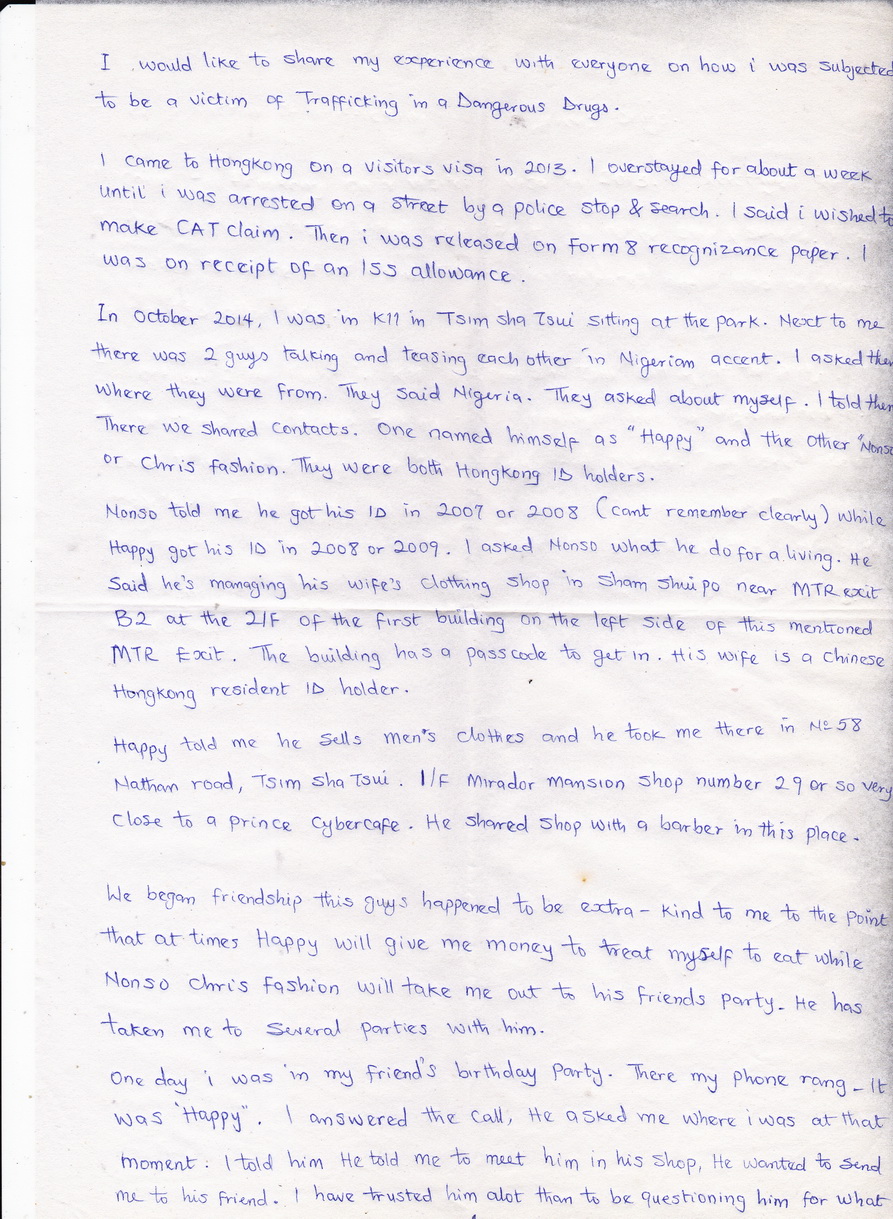 I would like to share my experience with everyone on how i was subjected
to be a victim of Trafficking in a Dangerous Drugs.
I came to HongKong on a visitors visa in 2013. I overstayed for about a week
until i was arrested on a street by a police stop & search. I said i wished to
make CAT claim. Then i was released on form 8 recognizance paper. I
was on receipt of an ISS allowance.
In October 2014, I was in K11 in Tsim sha Tsui sitting at the park. Next to me
there was 2 guys talking and teasing each other in Nigerian accent. I asked them
where they were from. They said Nigeria. They asked about myself. I told them
There we shared contacts. One named himself as "Happy" and the other "Nonso
or Chris fashion. They were both HongKong ID holders.
Nonso told me he got his ID in 2007 or 2008 (cant remember clearly) while
Happy got his ID in 2008 or 2009. I asked Nonso what he do for a living. He
Said he's managing his wife's clothing shop in Sham Shui po near MTR exit
B2 at the 2/F of the first building on the left side of this mentioned
MTR Exit. The building has a passcode to get in. His wife is a Chinese
Hongkong resident ID holder.
Happy told me he sells men's clothes and he took me there in No 58
Nathan road, Tsim Sha Tsui. 1/F Mirador Mansion Shop number 29 or so very
Close to a prince Cybercafe. He shared shop with a barber in this place.
We began friendship this guys happened to be extra-kind to me to the point
that at times Happy will give me money to treat myself to eat while
Nonso chris fashion will take me out to his friends party. He has
taken me to several parties with him.
One day i was in my friend's birthday party. There my phone rang - It
was "Happy". I answered the call, He asked me where i was at that
moment. I told him He told me to meet him in his shop, He wanted to send
me to his friend. I have trusted him alot than to be questioning him for what